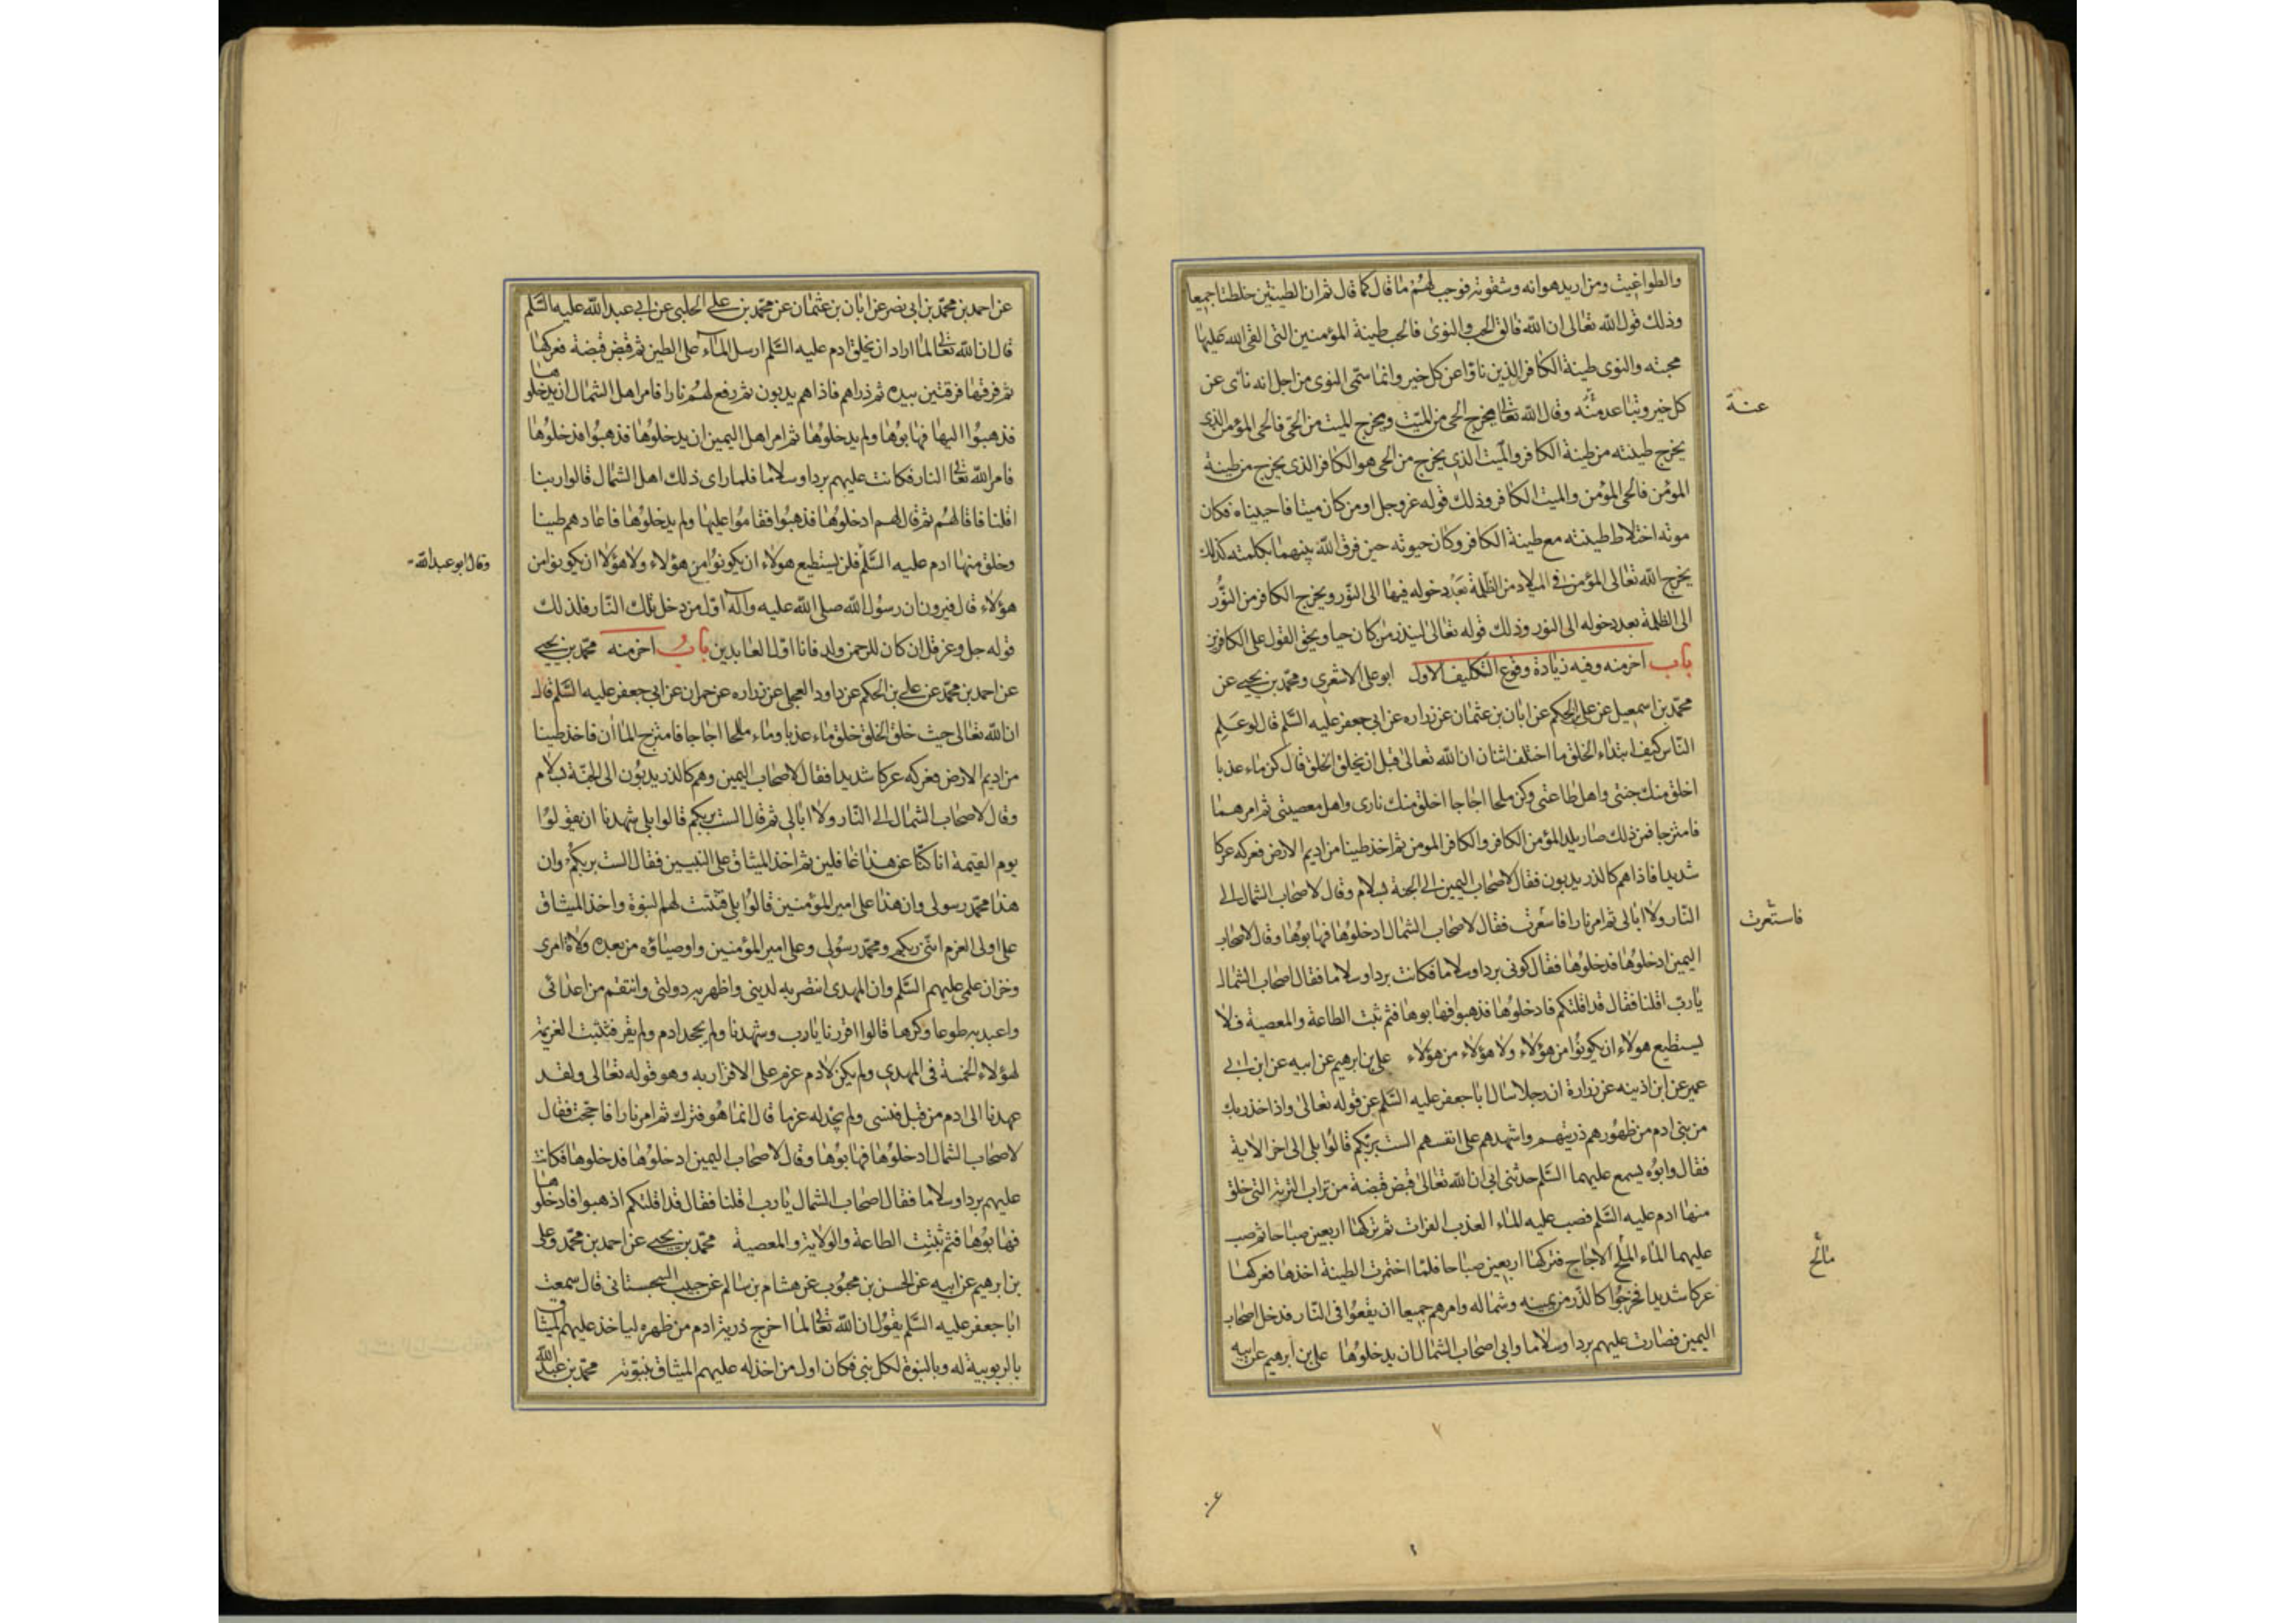 والطواغيت ومن اريد هوانه وشقوته فوجب لهم ما قال كما قال ثم ان الطينتين خلطتا جميعا
وذلك قول الله تعالى ان الله فالق الحب والنوى فالحب طينة المؤمنين التى القى الله عليها
محبته والنوى طينة الكافر الذين ناؤا عن كل خير وانما سمى النوى من اجل انه نائ عن
كل خير وتباعد منه وقال الله تعالى يخرج الحى من الميت ويخرج الميت من الحى فالحى المؤمن الذى
عنه
يخرج طينته من طينة الكافر والميت الذى يخرج من الحى هو الكافر الذى يخرج من طينة
المؤمن فالحى المؤمن والميت الكافر وذلك قوله عز وجل او من كان ميتا فاحييناه فكان
موته اختلاط طينته مع طينة الكافر وكان حيوته حين فرق الله بينهما بكلمته كذلك
يخرج الله تعالى المؤمن فى الميلاد من الظلمة بعد دخوله فيها الى النور ويخرج الكافر من النور
الى الظلمة بعد دخوله الى النور وذلك قوله تعالى لينذر من كان حيا ويحق القول على الكافرين
باب اخر منه وفيه زيادة وقوع التكليف الاول ابو على الاشعرى ومحمد بن يحيى عن
محمد بن اسمعيل عن على بن الحكم عن ابان بن عثمان عن زراره عن ابى جعفر عليه السلم قال لو علم
الناس كيف ابتداء الخلق ما اختلف اثنان ان الله تعالى قبل ان يخلق الخلق قال كن ماء عذبا
اخلق منك جنتى واهل طاعتى وكن ملحا اجاجا اخلق منك نارى واهل معصيتى ثم امرهما
فامتزجا فمن ذلك صار يلد المؤمن الكافر والكافر المومن ثم اخذ طينا من اديم الارض فعركه عركا
شديدا فاذا هم كالذر يدبون فقال لاصحاب اليمين الى الجنة بسلام وقال لاصحاب الشمال الى
النار ولا ابالى ثم امر نارا فاسعرت فقال لاصحاب الشمال ادخلوها فهابوها وقال لاصحاب
فاستعرت
اليمين ادخلوها فدخلوها فقال كونى بردا وسلاما فكانت بردا وسلاما فقال اصحاب الشمال
يارب اقلنا فقال قد اقلتكم فادخلوها فذهبوا فهابوها فثم ثبت الطاعة والمعصية فلا
يستطيع هولاء ان يكونوا من هؤلاء ولا هؤلاء من هؤلاء على بن ابرهيم عن ابيه عن ابن ابى
عمير عن ابن اذينه عن زرارة ان رجلا سال ابا جعفر عليه السلم عن قوله تعالى واذ اخذ ربك
من بنى ادم من ظهورهم ذريتهم واشهدهم على انفسهم الست بربكم قالوا بلى الى اخر الاية
فقال وابوه يسمع عليهما السلم حدثنى ابى ان الله تعالى قبض قبضة من تراب التربة التى خلق
منها ادم عليه السلم فصب عليه الماء العذب الفرات ثم تركها اربعين صباحا ثم صب
عليهما الماء الملح الاجاج فتركها اربعين صباحا فلما اختمرت الطينة اخذها فعركها
مالح
عركا شديدا فخرجوا كالذر من يمينه وشماله وامرهم جميعا ان يقعوا فى النار فدخل اصحاب
اليمين فصارت عليهم بردا وسلاما وابى اصحاب الشمال ان يدخلوها على بن ابرهيم عن ابيه
عن احمد بن محمد بن ابى نصر عن ابان بن عثمان عن محمد بن على الحلبى عن ابى عبد الله عليه السلم
قال ان الله تعالى لما اراد ان يخلق ادم عليه السلم ارسل الماء على الطين ثم قبض قبضة فعركها
ثم فرقها فرقتين بيده ثم ذراهم فاذا هم يدبون ثم رفع لهم نارا فامر اهل الشمال ان يدخلوها
فذهبوا اليها فهابوها ولم يدخلوها ثم امر اهل اليمين ان يدخلوها فذهبوا فدخلوها
فامر الله تعالى النار فكانت عليهم بردا وسلاما فلما راى ذلك اهل الشمال قالوا ربنا
اقلنا فاقالهم ثم قال لهم ادخلوها فذهبوا فقاموا عليها ولم يدخلوها فاعادهم طينا
وخلق منها ادم عليه السلم فلن يستطيع هولاء ان يكونوا من هؤلاء ولا هؤلاء ان يكونوا من
وقال ابو عبد الله
هؤلاء قال فيرون ان رسول الله صلى الله عليه واله اول من دخل تلك النار فلذلك
قوله جل وعز قل ان كان للرحمن ولد فانا اول العابدين باب اخر منه محمد بن يحيى
عن احمد بن محمد عن على بن الحكم عن داود العجلى عن زراره عن حمران عن ابى جعفر عليه السلم قال
ان الله تعالى حيث خلق الخلق خلق ماء عذبا وماء ملحا اجاجا فامتزج الماأن فاخذ طينا
من اديم الارض فعركه عركا شديدا فقال لاصحاب اليمين وهم كالذر يدبون الى الجنة بسلام
وقال لاصحاب الشمال الى النار ولا ابالى ثم قال الست بربكم قالوا بلى شهدنا ان يقولوا
يوم القيمة انا كنا عن هذا غافلين ثم اخذ الميثاق على النبيين فقال الست بربكم وان
هذا محمد رسولى وان هذا على امير المؤمنين قالوا بلى فثبتت لهم النبوة واخذ الميثاق
على اولى العزم اننى ربكم ومحمد رسولى وعلى امير المؤمنين واوصياؤه من بعده ولاة امرى
وخزان علمى عليهم السلم وان المهدى انتصر به لدينى واظهر به دولتى وانتقم من اعدائى
واعبد به طوعا وكرها قالوا اقررنا يارب وشهدنا ولم يجحد ادم ولم يقر فثبتت العزيمة
لهؤلاء الخمسة فى المهدى ولم يكن لادم عزم على الاقرار به وهو قوله تعالى ولقد
عهدنا الى ادم من قبل فنسى ولم نجد له عزما قال انما هو فترك ثم امر نارا فاججت فقال
لاصحاب الشمال ادخلوها فهابوها وقال لاصحاب اليمين ادخلوها فدخلوها فكانت
عليهم بردا وسلاما فقال اصحاب الشمال يارب اقلنا فقال قد اقلتكم اذهبوا فادخلوها
فهابوها فثم ثبتت الطاعة والولاية والمعصية محمد بن يحيى عن احمد بن محمد وعلى
بن ابرهيم عن ابيه عن الحسن بن محبوب عن هشام بن سالم عن حبيب السجستانى قال سمعت
ابا جعفر عليه السلم يقول ان الله تعالى لما اخرج ذرية ادم من ظهره لياخذ عليهم الميثاق
بالربوبية له وبالنبوة لكل نبى فكان اول من اخذ له عليهم الميثاق بنبوته محمد بن عبد الله